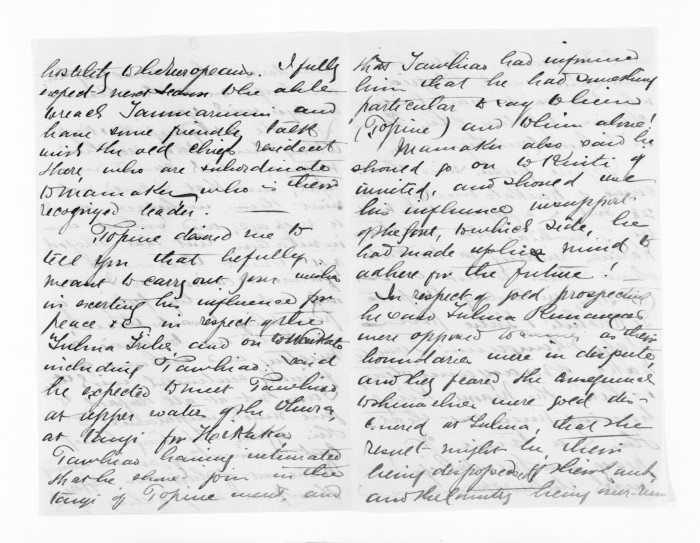 hostility to the Europeans. I fully
expect next season to be able
to reach Taumarunui and
have some friendly talk
with the old chiefs resident
there, who are subordinate
to Mamaku, who is their
recognized leader.
Topine desired me to
tell you that he fully
meant to carry out your wishes
in exerting his influence for
peace &c in respect of the
Tuhua Tribes, and on to Waikato
including Tawhiao. Said
he expected to meet Tawhiao
at upper waters of the Ohura,
at tangi for
Tawhiao having intimated
that he should join in the
tangi if Topine went, and
that Tawhiao had informed
him that he had something
particular to say to him
(Topine) and to him alone!
Mamaku also said he
should go on to Kuiti if
invited, and should use
his influence in support
of the Govt, to which side, he
had made up his mind to
adhere for the future!
In respect of gold prospecting
he said Tuhua Runangas
were opposed to as their
boundaries were in dispute,
and they feared the consequences
to themselves were gold dis-
covered at Tuhua, that the
result might be, their
being dispossessed of their lands
and the Country being over-run